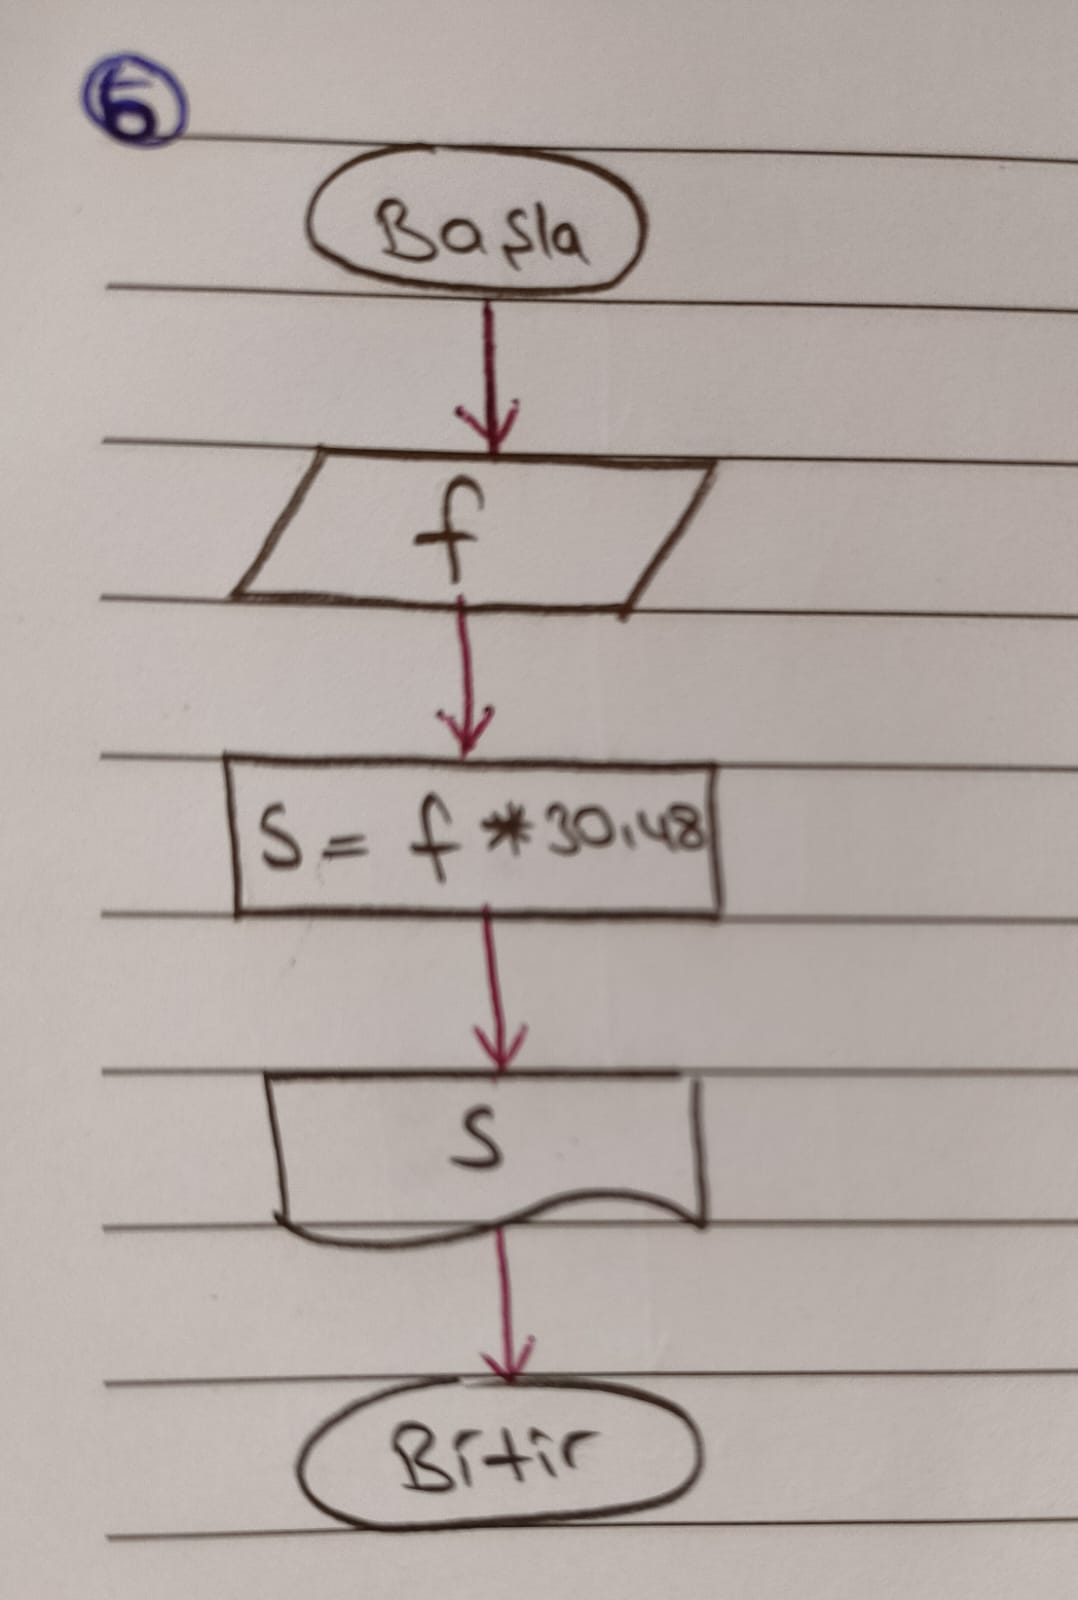 6
Başla
f
S = f * 30,48
S
Bitir